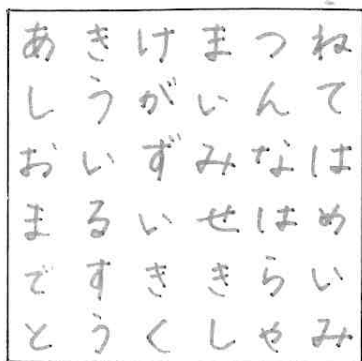 あきけまつね
しうがいんて
おいずみなは
まるいせはめ
ですききらい
とうくしゃみ